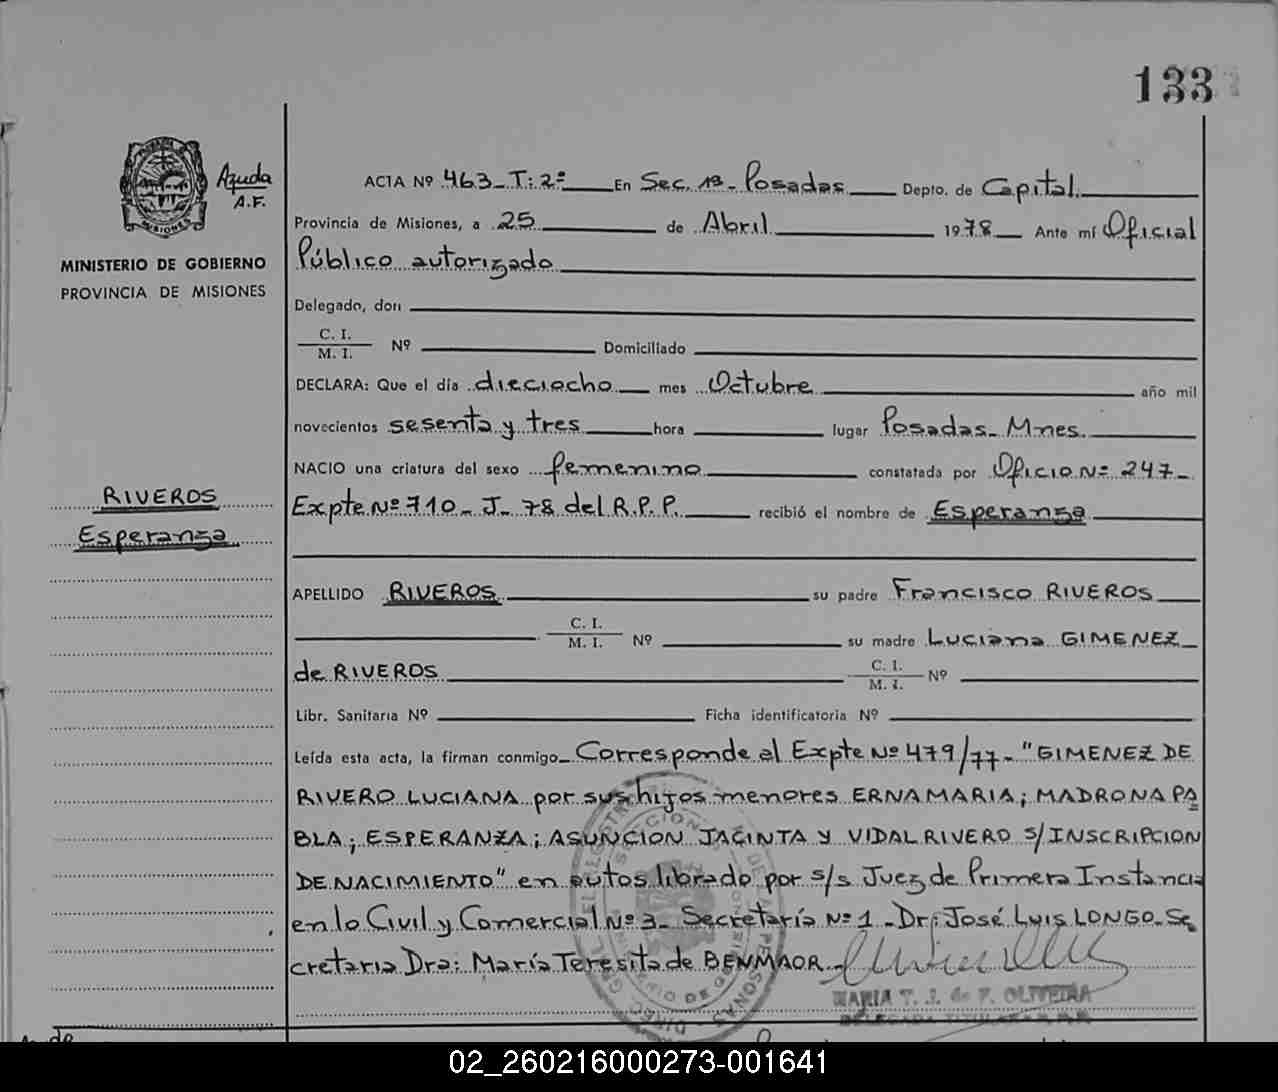 133
Ayuda
A.F.
MISIONES
MINISTERIO DE GOBIERNO
PROVINCIA DE MISIONES
RIVEROS
Esperanza
ACTA Nº 463_T: 2º En Sec. 1ª_ Posadas Depto. de Capital.
Provincia de Misiones, a 25 de Abril 1978 Ante mí Oficial
Público autorizado
Delegado, don
C. I.
M. I. Nº Domiciliado
DECLARA: Que el día dieciocho mes Octubre año mil
novecientos sesenta y tres hora lugar Posadas_ Mnes.
NACIO una criatura del sexo femenino constatada por Oficio Nº 247_
Expte Nº 710_ J_ 78 del R.P.P. recibió el nombre de Esperanza
APELLIDO RIVEROS su padre Francisco RIVEROS
C. I.
M. I. Nº su madre Luciana GIMENEZ
de RIVEROS C. I.
M. I. Nº
Libr. Sanitaria Nº Ficha identificatoria Nº
Leída esta acta, la firman conmigo_ Corresponde al Expte Nº 479/77_ "GIMENEZ DE
RIVERO LUCIANA por sus hijos menores ERNA MARIA; MADRONA PA
BLA; ESPERANZA; ASUNCION JACINTA Y VIDAL RIVERO S/INSCRIPCION
DE NACIMIENTO" en autos librado por s/s Juez de Primera Instancia
en lo Civil y Comercial Nº 3_ Secretaría Nº 1_ Dr: José Luis LONGO_ Se
cretaria Dra: María Teresita de BENMAOR_
MARIA T. J. de F. OLIVEIRA
02_260216000273-001641